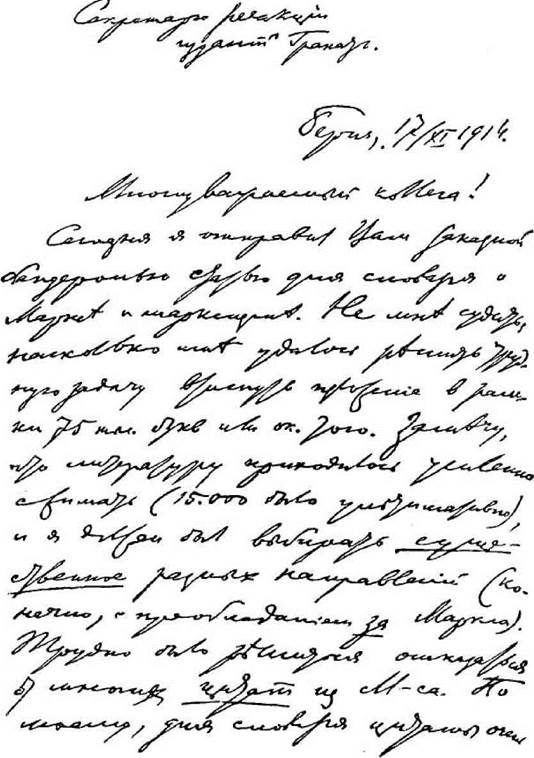 Секретарю редакціи
издан. Гранатъ.
Берн, 17/XI 1914.
Многоуважаемый коллега!
Сегодня я отправил Вам заказной
бандеролью статью для словаря о
Марксѣ и марксизмѣ. Не мнѣ судить,
насколько мнѣ удалось рѣшить труд-
ную задачу втиснуть изложеніе в рам-
ки 75 тыс. букв или ок. того. Замѣчу,
что литературу приходилось усиленно
сжимать (15.000 было ультимативно),
и я должен был выбирать суще-
ственное разных направленій (ко-
нечно, с преобладаніем за Маркса).
Трудно было рѣшиться отказаться
от многих цитат из М-са. По
моему, для словаря цитаты очень